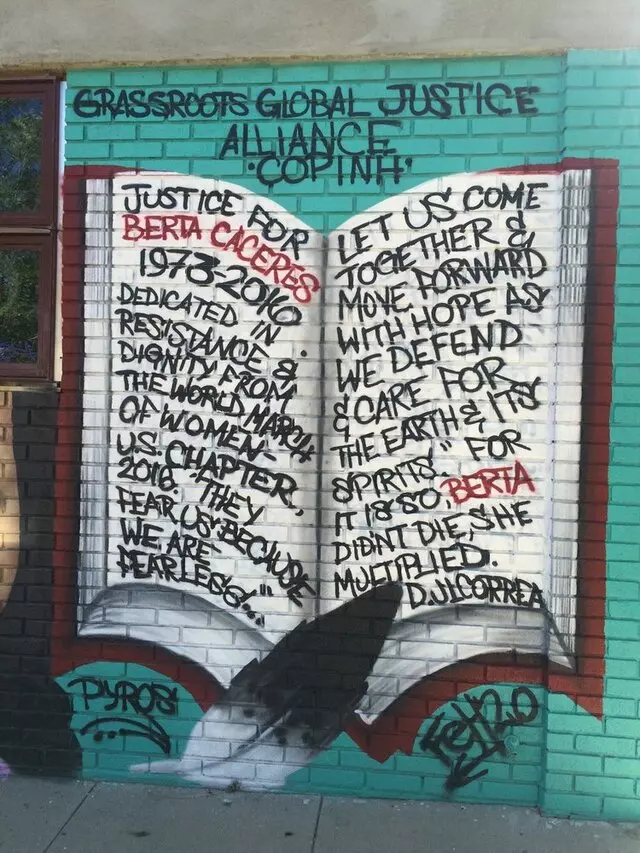 GRASSROOTS GLOBAL JUSTICE
ALLIANCE
"COPINH"
JUSTICE FOR
BERTA CACERES
1973-2016
DEDICATED IN
RESISTANCE &
DIGNITY FROM
THE WORLD MARCH
OF WOMEN-
U.S. CHAPTER,
2016. "THEY
FEAR US BECAUSE
WE ARE
FEARLESS..."
LET US COME
TOGETHER &
MOVE FORWARD
WITH HOPE AS
WE DEFEND
& CARE FOR
THE EARTH & ITS
SPIRITS." FOR
IT IS SO, BERTA
DIDINT DIE, SHE
MULTIPLIED.
PYROS